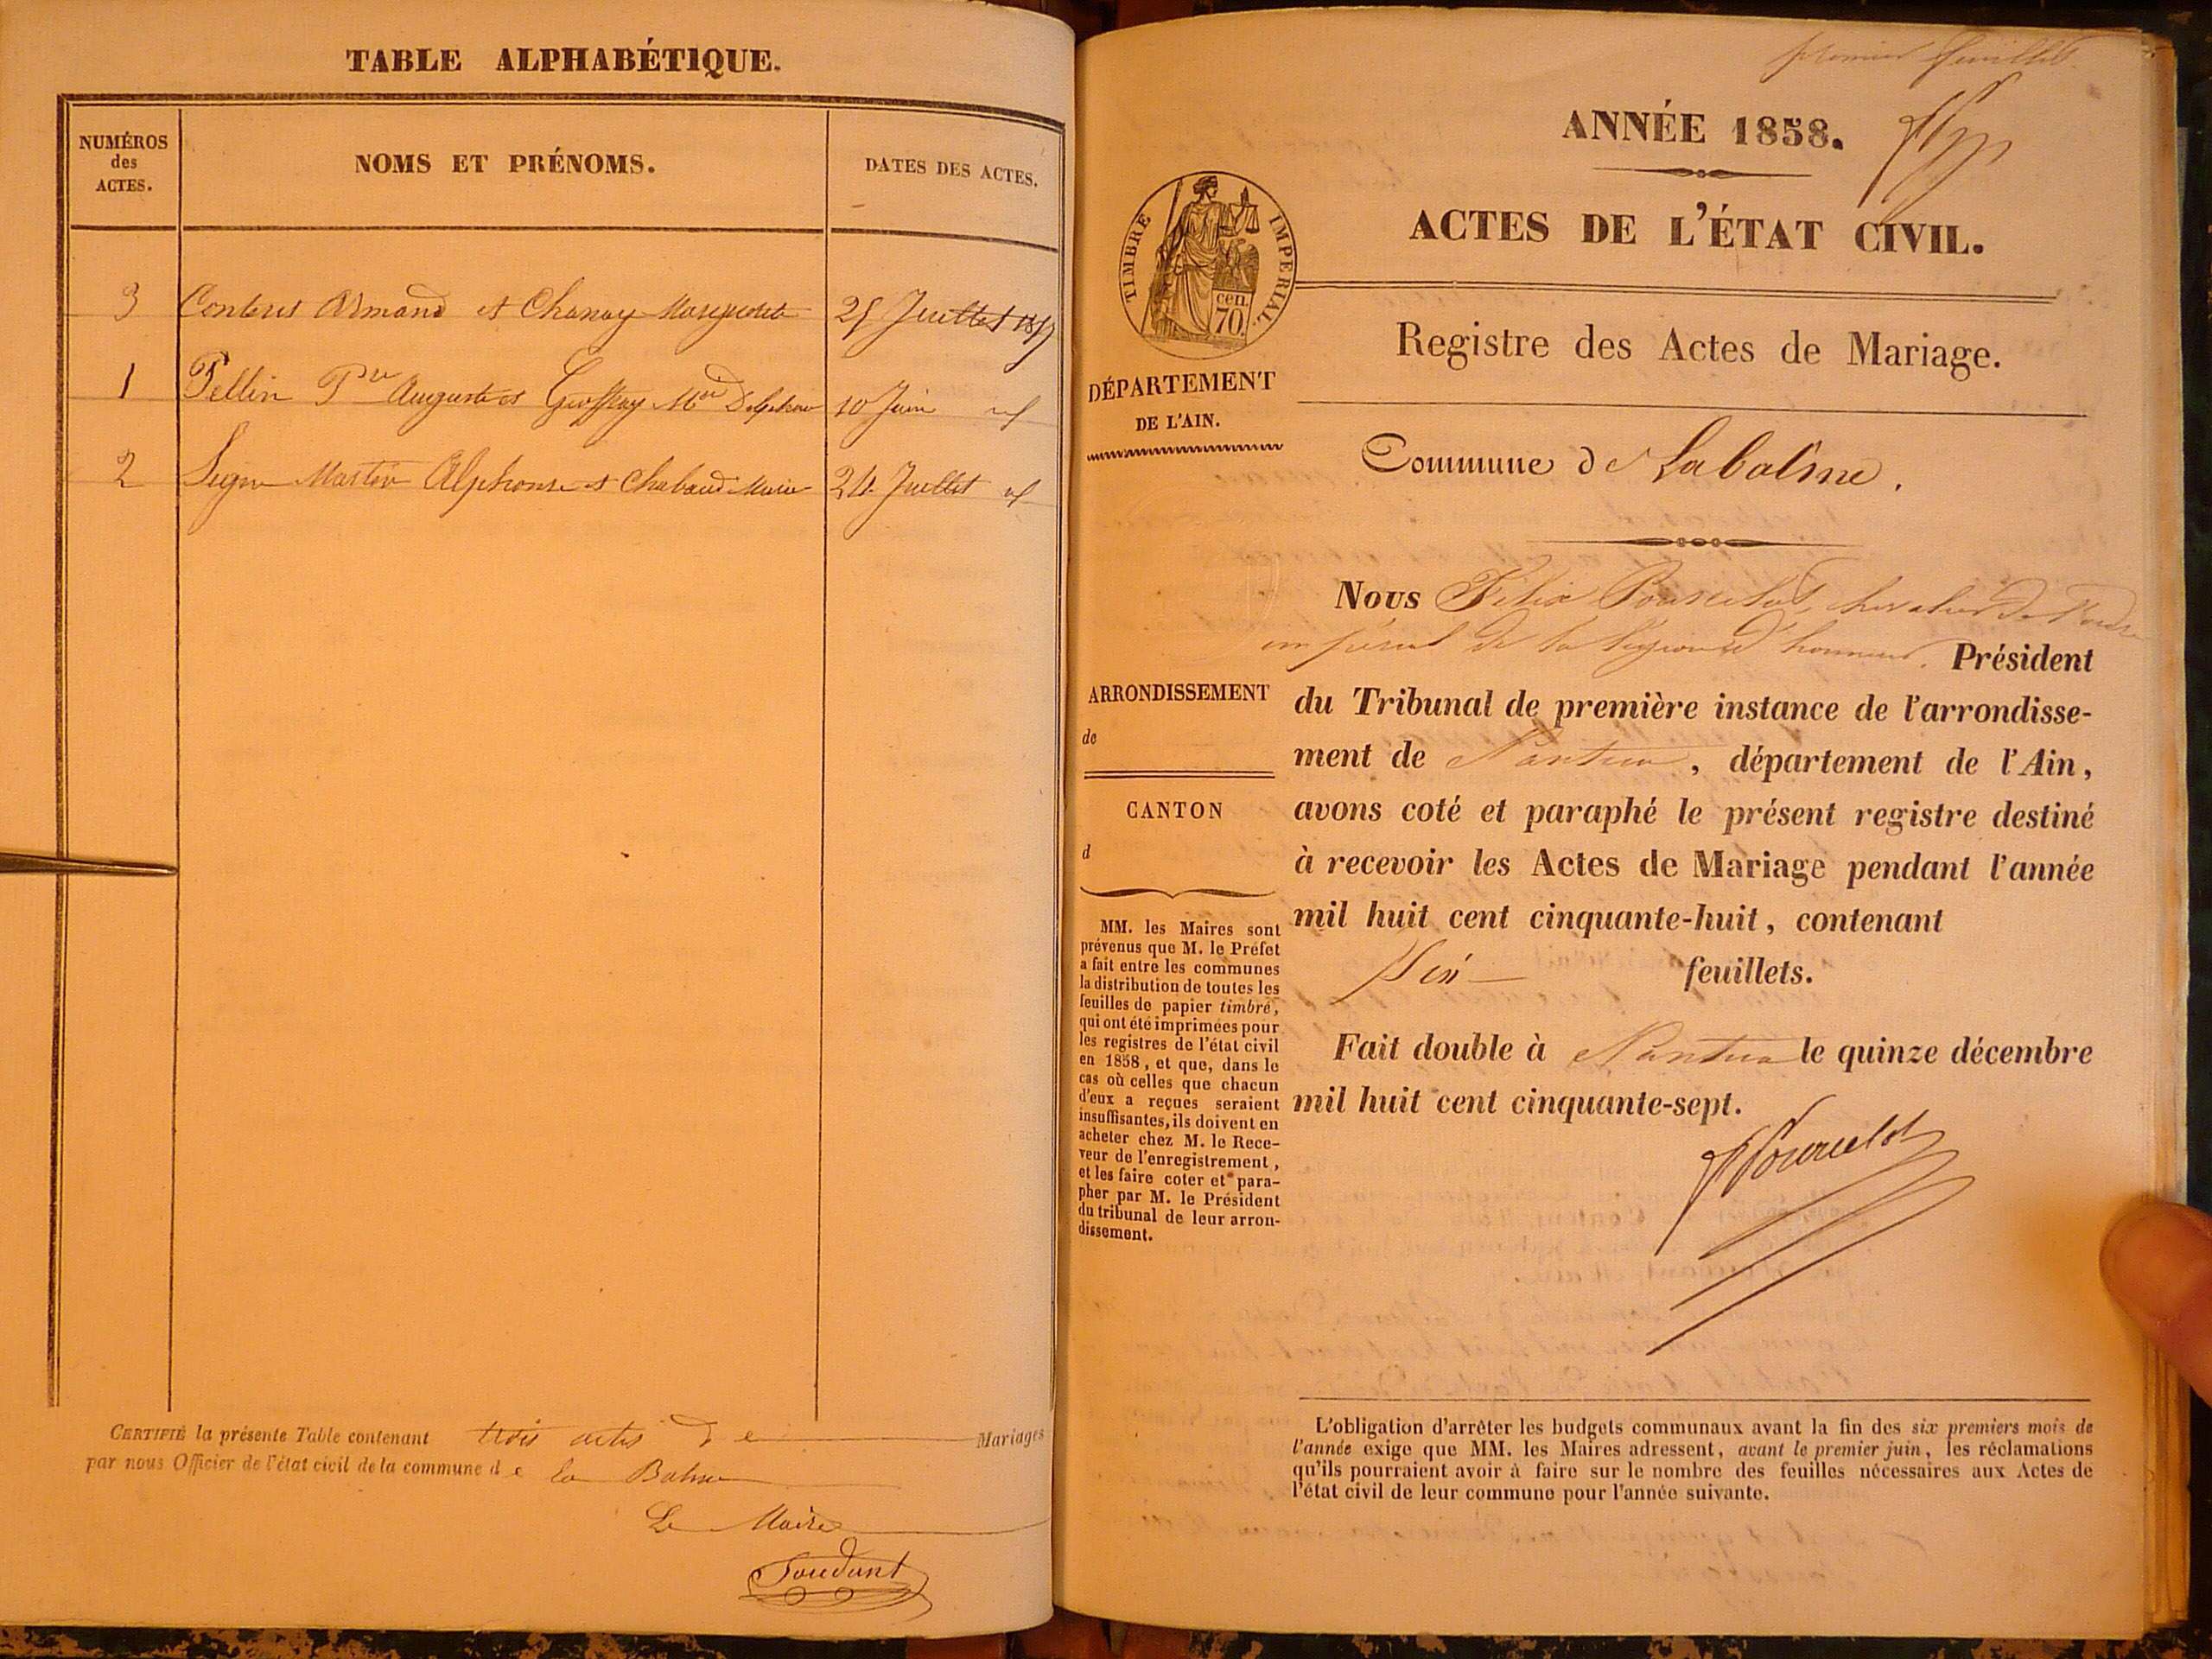 TABLE ALPHABÉTIQUE.
NUMÉROS
des
ACTES.
NOMS ET PRÉNOMS.
DATES DES ACTES.
3 Armand et Chanay Marguerite 25 Juillet 1857
1 Pellin Auguste et Geoffray Mie Delphine 10 Juin id
2 Martin Alphonse et Chabaud Marie 24 Juillet id
CERTIFIÉ la présente Table contenant trois actes de Mariages
par nous Officier de l'état civil de la commune de La Balme
Le Maire
Soudant
premier feuillet
ANNÉE 1858.
ACTES DE L'ÉTAT CIVIL.
TIMBRE IMPERIAL.
cen.
70.
Registre des Actes de Mariage.
DÉPARTEMENT
DE L'AIN.
Commune de Labalme.
Nous Félix Pourcelot, chevalier de l'ordre
impérial de la légion d'honneur, Président
ARRONDISSEMENT
de
du Tribunal de première instance de l'arrondisse-
ment de Nantua, département de l'Ain,
CANTON
d
avons coté et paraphé le présent registre destiné
à recevoir les Actes de Mariage pendant l'année
mil huit cent cinquante-huit, contenant
Six feuillets.
Fait double à Nantua le quinze décembre
mil huit cent cinquante-sept.
FPourcelot
MM. les Maires sont
prévenus que M. le Préfet
a fait entre les communes
la distribution de toutes les
feuilles de papier timbré,
qui ont été imprimées pour
les registres de l'état civil
en 1858, et que, dans le
cas où celles que chacun
d'eux a reçues seraient
insuffisantes, ils doivent en
acheter chez M. le Rece-
veur de l'enregistrement,
et les faire coter et para-
pher par M. le Président
du tribunal de leur arron-
dissement.
L'obligation d'arrêter les budgets communaux avant la fin des six premiers mois de
l'année exige que MM. les Maires adressent, avant le premier juin, les réclamations
qu'ils pourraient avoir à faire sur le nombre des feuilles nécessaires aux Actes de
l'état civil de leur commune pour l'année suivante.